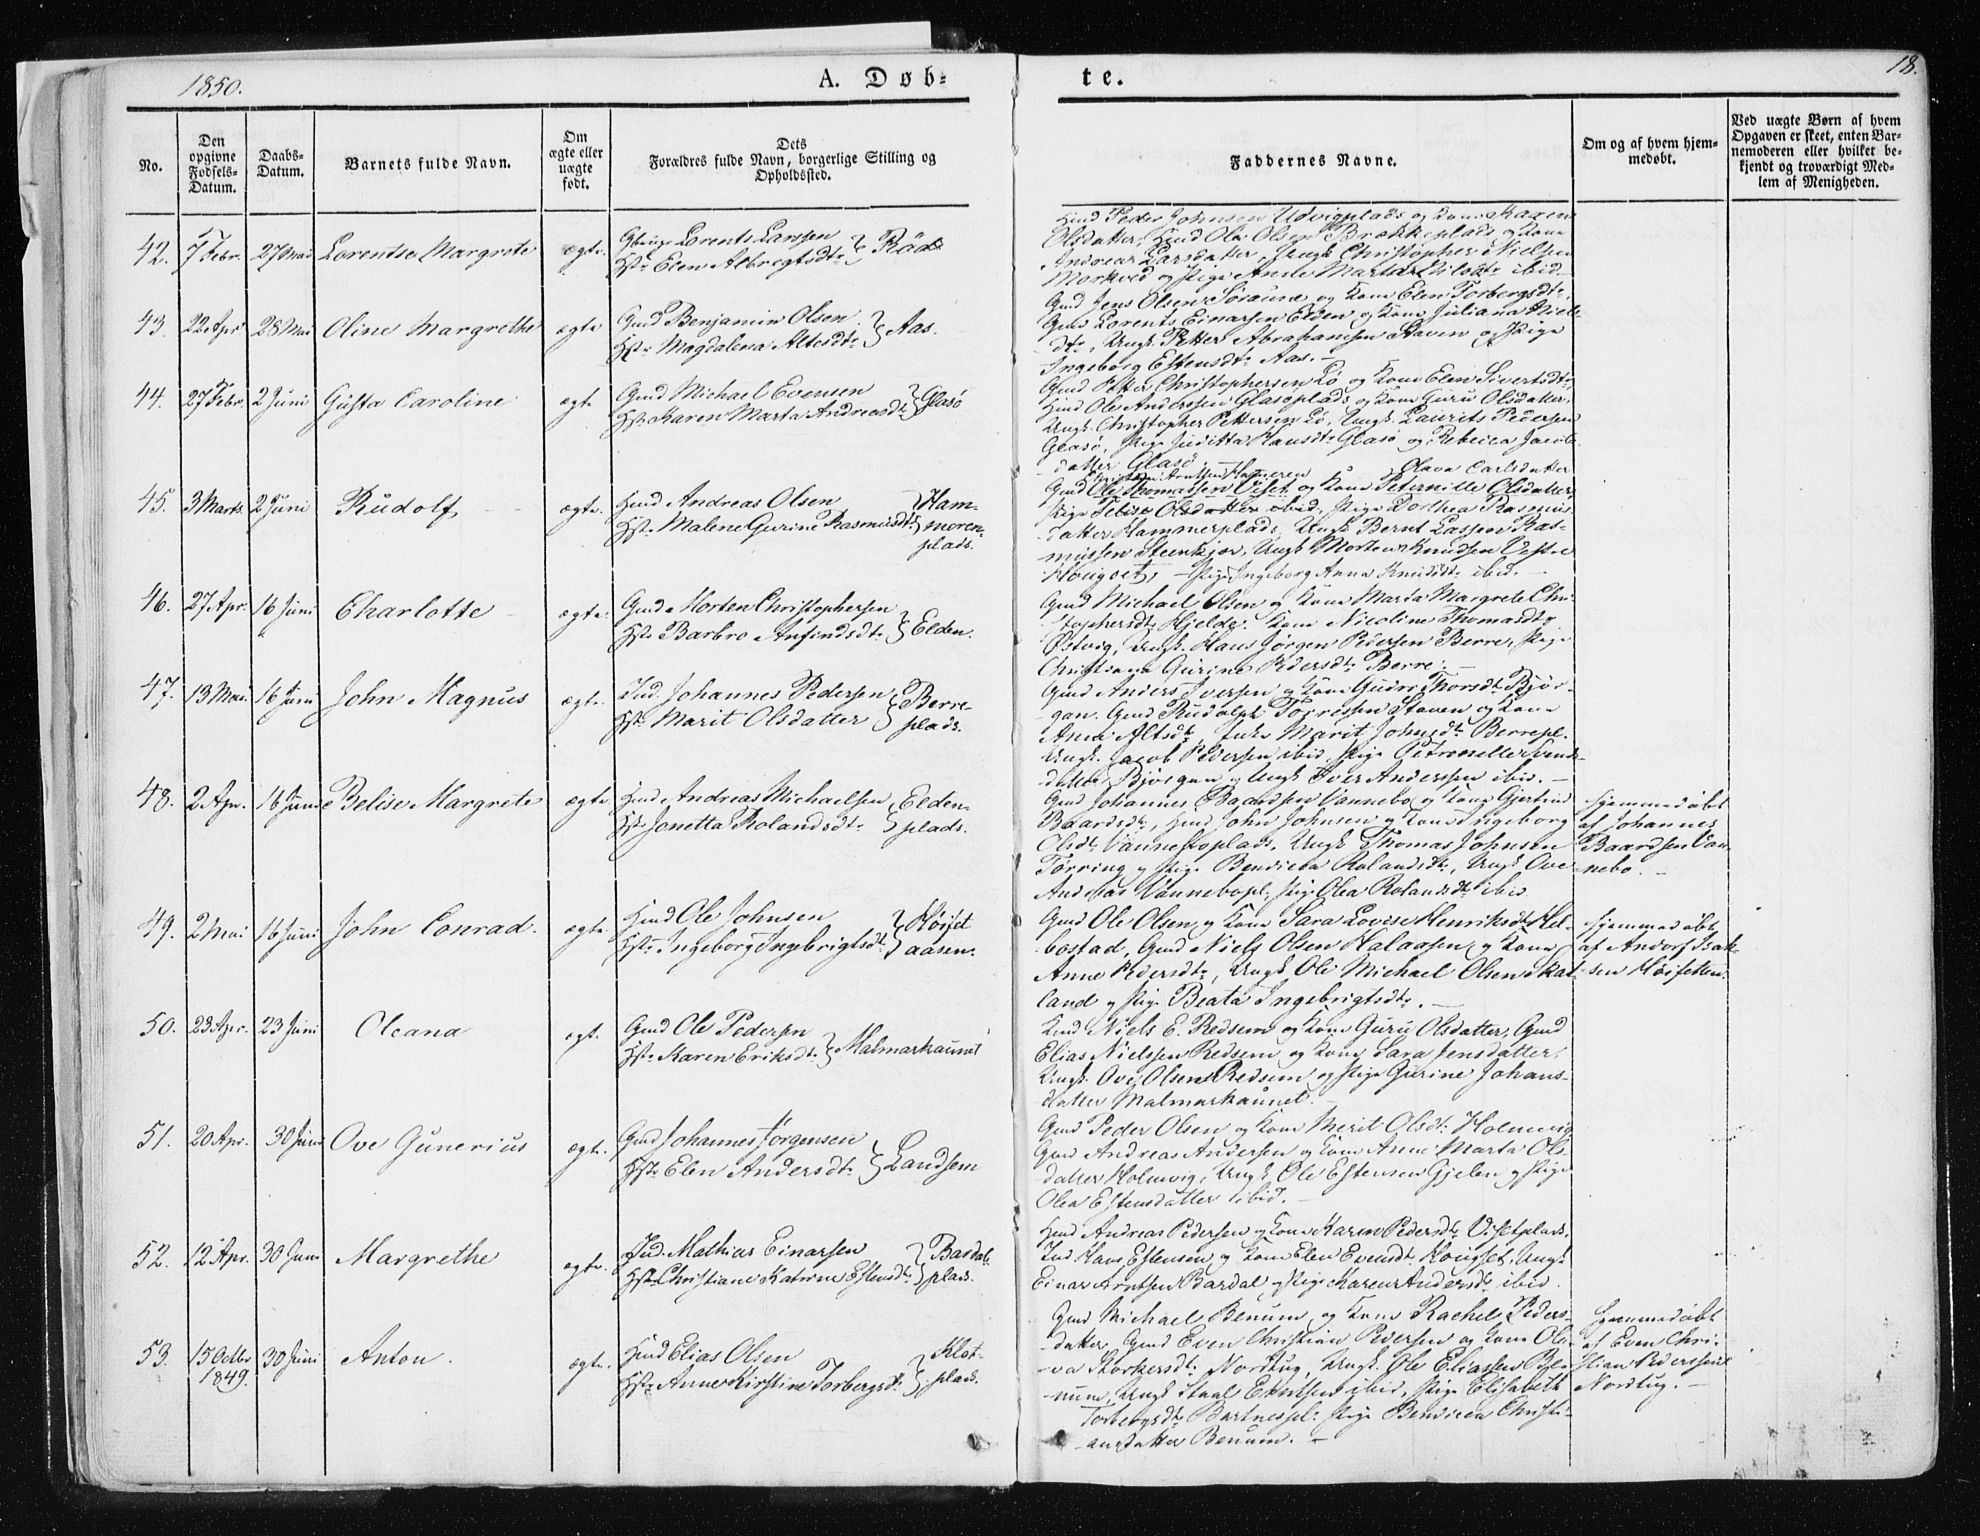 1850.
A. Døb-
te.
18.
No.
Den opgivne Fødsels-Datum.
Daabs-Datum.
Barnets fulde Navn.
Om ægte eller uægte født.
Dets Forældres fulde Navn, borgerlige Stilling og Opholdssted.
Faddernes Navne.
Om og af hvem hjem-
medøbt.
Ved uægte Børn af hvem
Opgaven er skeet, enten Bar-
nemoderen eller hvilket be-
kjendt og troværdigt Med-
lem af Menigheden.
42. 7 Febr. 27 Mai Lorentse Margrete ægte. Lorents Larssen } Råd
Hst: Elen Albregtsdt:
Hmd Peder Johnsen Udvigplads og Kone Karen
Olsdatter, Hmd Ole Olsen Brækkeplads og Kone
Andrea Larsdatter, Ungk Christopher Nielsen
Morkved og Pige Anne Marta Nilsdt: ibid
43. 22 Apr. 28 Mai Oline Margrethe ægte Gmd Benjamin Olsen } Aas.
Hst: Magdalena Altesdt:
Gmd Jens Olsen Søraune og Kone Elen Torbergsdt:,
Gmd Lorents Einarsen Elden og Kone Juliana Niels
dt:, Ungk. Petter Abrahamsen Staven og Pige
Ingeborg Estensdt: Aas. –
44. 27 Febr. 2 Juni Gusta Caroline ægte Gmd Michael Evensen } Glasø
Hst: Karen Marta Andreasdt:
Gmd Petter Christophersen Lø og Kone Elen Sivertsdt:,
Hmd Ole Andersen Glasøplads og Kone Guru Olsdatter,
Ungk. Christopher Pettersen Lø, Ungk. Laurits Pedersen
Glasø, Pige Juditta Hansdt: Glasø og Rebecca Jacobs
datter Glasø.
45. 3 Marts. 2 Juni Rudolf ægte. Hmd Andreas Olsen } Ham-
Hst: Malene Gurine Rasmusdt: meren-
plads.
Olava Carlsdatter
Gmd Ole Thomassen Viset og Kone Peternille Olsdatter,
Pige Olsdatter ibid, Pige Dorthea Rasmus
datter Hammerplads, Ungk Bernt Caspen Ras-
mussen Steenkjær, Ungk Morten Knudsen Vestre
Hougset, – Pige Ingeborg Anna Knudsdt: ibid. –
46. 27 Apr. 16 Juni Charlotte ægte. Gmd Morten Christophersen } Elden.
Hst: Barbro Anfindsdt:
Gmd Michael Olsen og Kone Marta Margrete Chri-
stophersdt: Hjelde. Kone Nicoline Thomasdt:
Østvig, Ungk. Hans Jørgen Pedersen Berre, Pige
Christiana Gurine Pedersdt: Berre. –
47. 13 Mai. 16 Juni John Magnus ægte. Ind. Johannes Pedersen } Berre-
Hst: Marit Olsdatter plads.
Gmd Anders Iversen og Kone Gudro Thorsdt: Bjør-
gan. Gmd Rudolph Torrissen Staven og Kone
Anne Altsdt:, Enke Marit Johnsdt: Berrepl.
Ungk. Jacob Pedersen ibid, Pige Petronelle Svends-
datter Bjørgan og Ungk Iver Anderssen ibid. –
48. 2 Apr. 16 Juni Belise Margrete ægte Hmd Andreas Michaelsen } Elden-
Hst: Jonetta Rolandsdt: plads.
Gmd Johannes Baardsen Vannebo og Kone Gjertrud
Baardsdt:, Hmd John Johnsen og Kone Ingeborg
Olsdt: Vanneboplads, Ungk Thomas Johnsen
Tørring og Pige Bendicta Rolandsdt:, Ungk Ove
Andreas Vannebopl: Pige Olea Rolandsdt: ibid
Hjemmedøbt
af Johannes
Baardsen Van-
nebo. –
49. 2 Mai 16 Juni John Conrad. ægte Hmd Ole Johnsen } Høiset
Hst: Ingeborg Ingebrigtsdt: aasen.
Gmd Ole Olsen og Kone Sara Lovise Henriksdt: Hel-
bostad, Gmd Niels Olsen Halaasen og Kone
Anne Pedersdt:, Ungk Ole Michael Olsen Skat-
land og Pige Beata Ingebrigtsdt. –
Hjemmedøbt
af Andorf Isak-
sen Høisetten.
50. 23 Apr. 23 Juni Oleana ægte. Gmd Ole Pedersen } Malmarkaunet
Hst: Karen Eriksdt:
Kmd Niels E. Redsem og Kone Guru Olsdatter, Gmd
Elias Nielssen Redsem og Kone Sara Jensdatter,
Ungk. Ove Olsen Redsem og Pige Gurine Johans-
datter Malmarkaunet. –
51. 20 Apr. 30 Juni Ove Gunerius ægte. Gmd Johannes Jørgensen } Landsem
Hst: Elen Andersdt:
Gmd Peder Olsen og Kone Merit Olsdt: Holmvig
Gmd Andreas Andersen og Kone Anne Marta Ols-
datter Holmvig, Ungk. Ole Estensen Gjelen og Pige
Olea Estensdatter ibid. –
52. 12 Apr. 30 Juni Margrethe ægte. Ind. Mathias Einarsen } Bardal-
Hst: Christiane Katrine Estensdt: plads.
Hmd Andreas Pedersen og Kone Karen Pedersdt: Visetplads,
Ind Hans Estensen og Kone Elen Evensdt: Hougset, Ungk
Einar Arntsen Bardal og Pige Karen Andersdt: ibid.
53. 15 Octbr 1849. 30 Juni Anton. ægte. Hmd Elias Olsen } Klat-
Hst: Anne Kirstine Torbergsdt: plads.
Gmd Michael Benum og Kone Rachel Peders-
datter, Gmd Even Christian Pedersen og Kone Ole-
va Storkersdt: Nordtug, Ungk. Ole Eliassen Be-
num, Ungk Staal Evensen ibid, Pige Elisabeth
Torbergsdt: Bartnespl: Pige Bendicta Christi-
ansdatter Benum. –
Hjemmedøbt
af Even Chri-
stian Pedersen
Nordtug. –